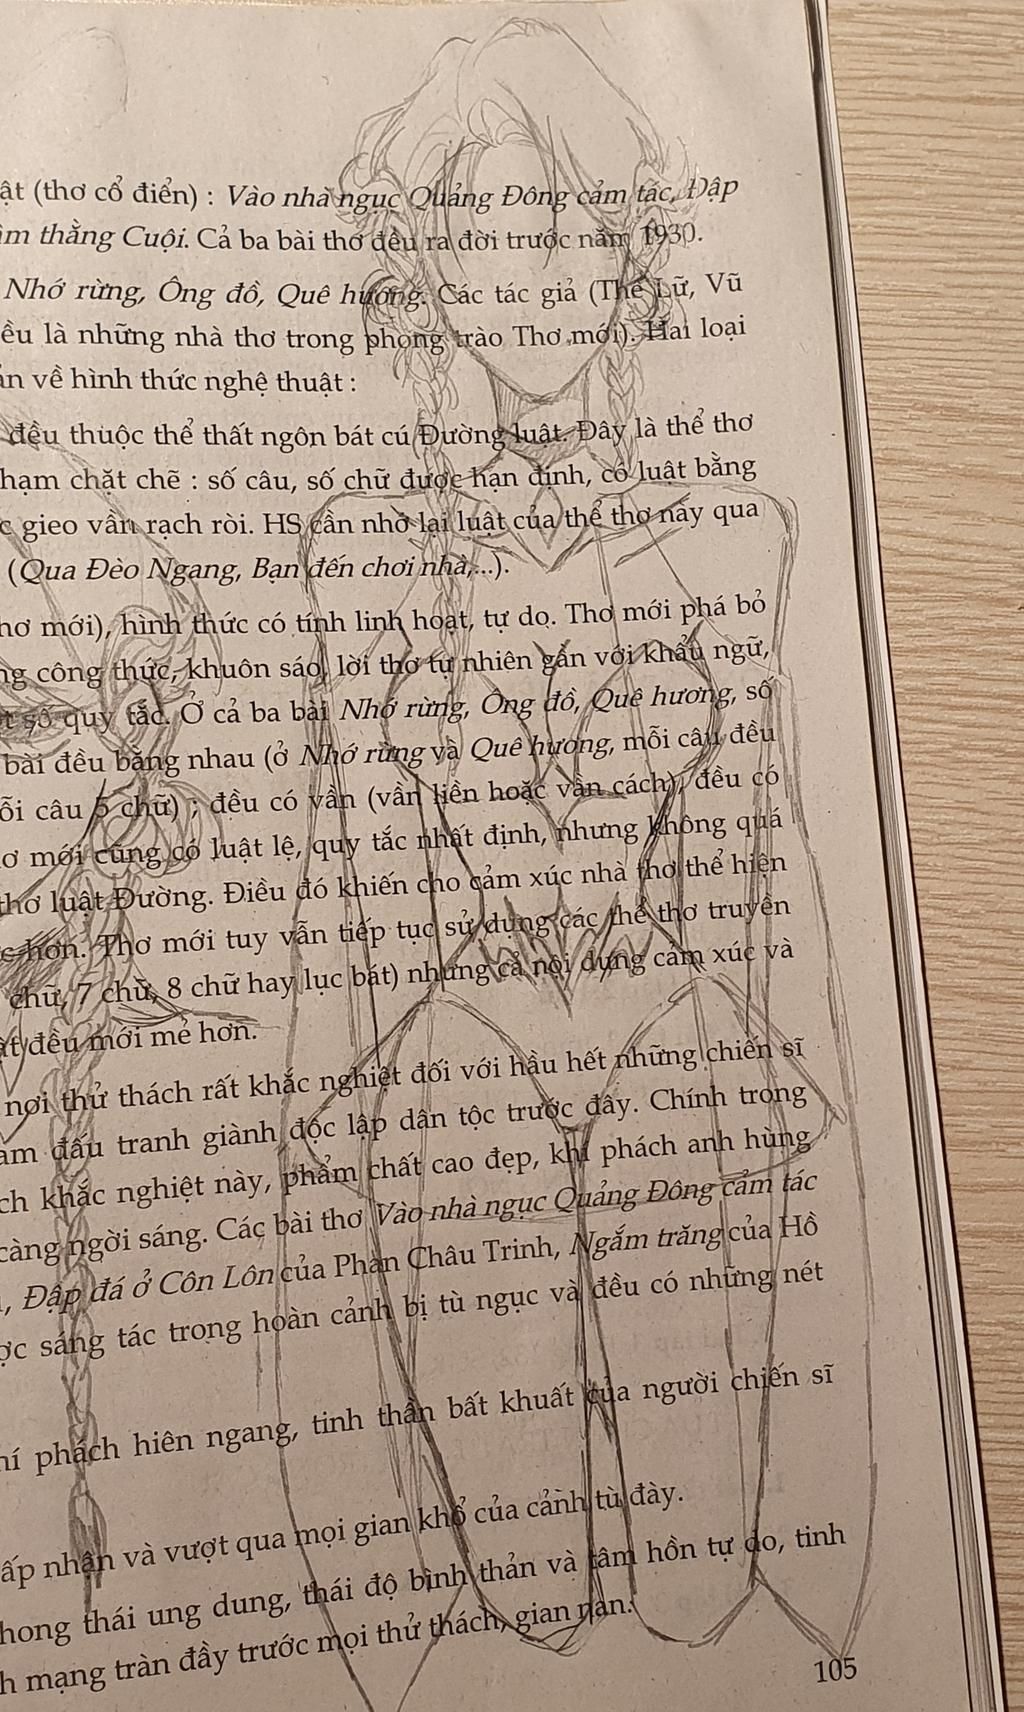 ật (thơ cổ điển) : Vào nhà ngục Quảng Đông cảm tác, Đập
thằng Cuội. Cả ba bài thơ đều ra đời trước năm 1930.
Nhớ rừng, Ông đồ, Quê hương. Các tác giả (Thế Lữ, Vũ
ều là những nhà thơ trong phong trào Thơ mới). Hai loại
ản về hình thức nghệ thuật :
đều thuộc thể thất ngôn bát cú Đường luật. Đây là thể thơ
hạm chặt chẽ : số câu, số chữ được hạn định, có luật bằng
c gieo vần rạch ròi. HS cần nhớ lại luật của thể thơ này qua
(Qua Đèo Ngang, Bạn đến chơi nhà,...).
hơ mới), hình thức có tính linh hoạt, tự do. Thơ mới phá bỏ
ng công thức, khuôn sáo, lời thơ tự nhiên gần với khẩu ngữ,
t số quy tắc. Ở cả ba bài Nhớ rừng, Ông đồ, Quê hương, số
bài đều bằng nhau (ở Nhớ rừng và Quê hương, mỗi câu đều
ỗi câu 5 chữ) ; đều có vần (vần liền hoặc vần cách), đều có
ơ mới cũng có luật lệ, quy tắc nhất định, nhưng không quá
thơ luật Đường. Điều đó khiến cho cảm xúc nhà thơ thể hiện
hơn. Thơ mới tuy vẫn tiếp tục sử dụng các thể thơ truyền
chữ, 7 chữ, 8 chữ hay lục bát) nhưng cả nội dung cảm xúc và
ật đều mới mẻ hơn.
nơi thử thách rất khắc nghiệt đối với hầu hết những chiến sĩ
am đấu tranh giành độc lập dân tộc trước đây. Chính trong
ch khắc nghiệt này, phẩm chất cao đẹp, khí phách anh hùng
càng ngời sáng. Các bài thơ Vào nhà ngục Quảng Đông cảm tác
, Đập đá ở Côn Lôn của Phan Châu Trinh, Ngắm trăng của Hồ
ợc sáng tác trong hoàn cảnh bị tù ngục và đều có những nét
hí phách hiên ngang, tinh thần bất khuất của người chiến sĩ
ấp nhận và vượt qua mọi gian khổ của cảnh tù đày.
hong thái ung dung, thái độ bình thản và tâm hồn tự do, tinh
h mạng tràn đầy trước mọi thử thách, gian nan.
105